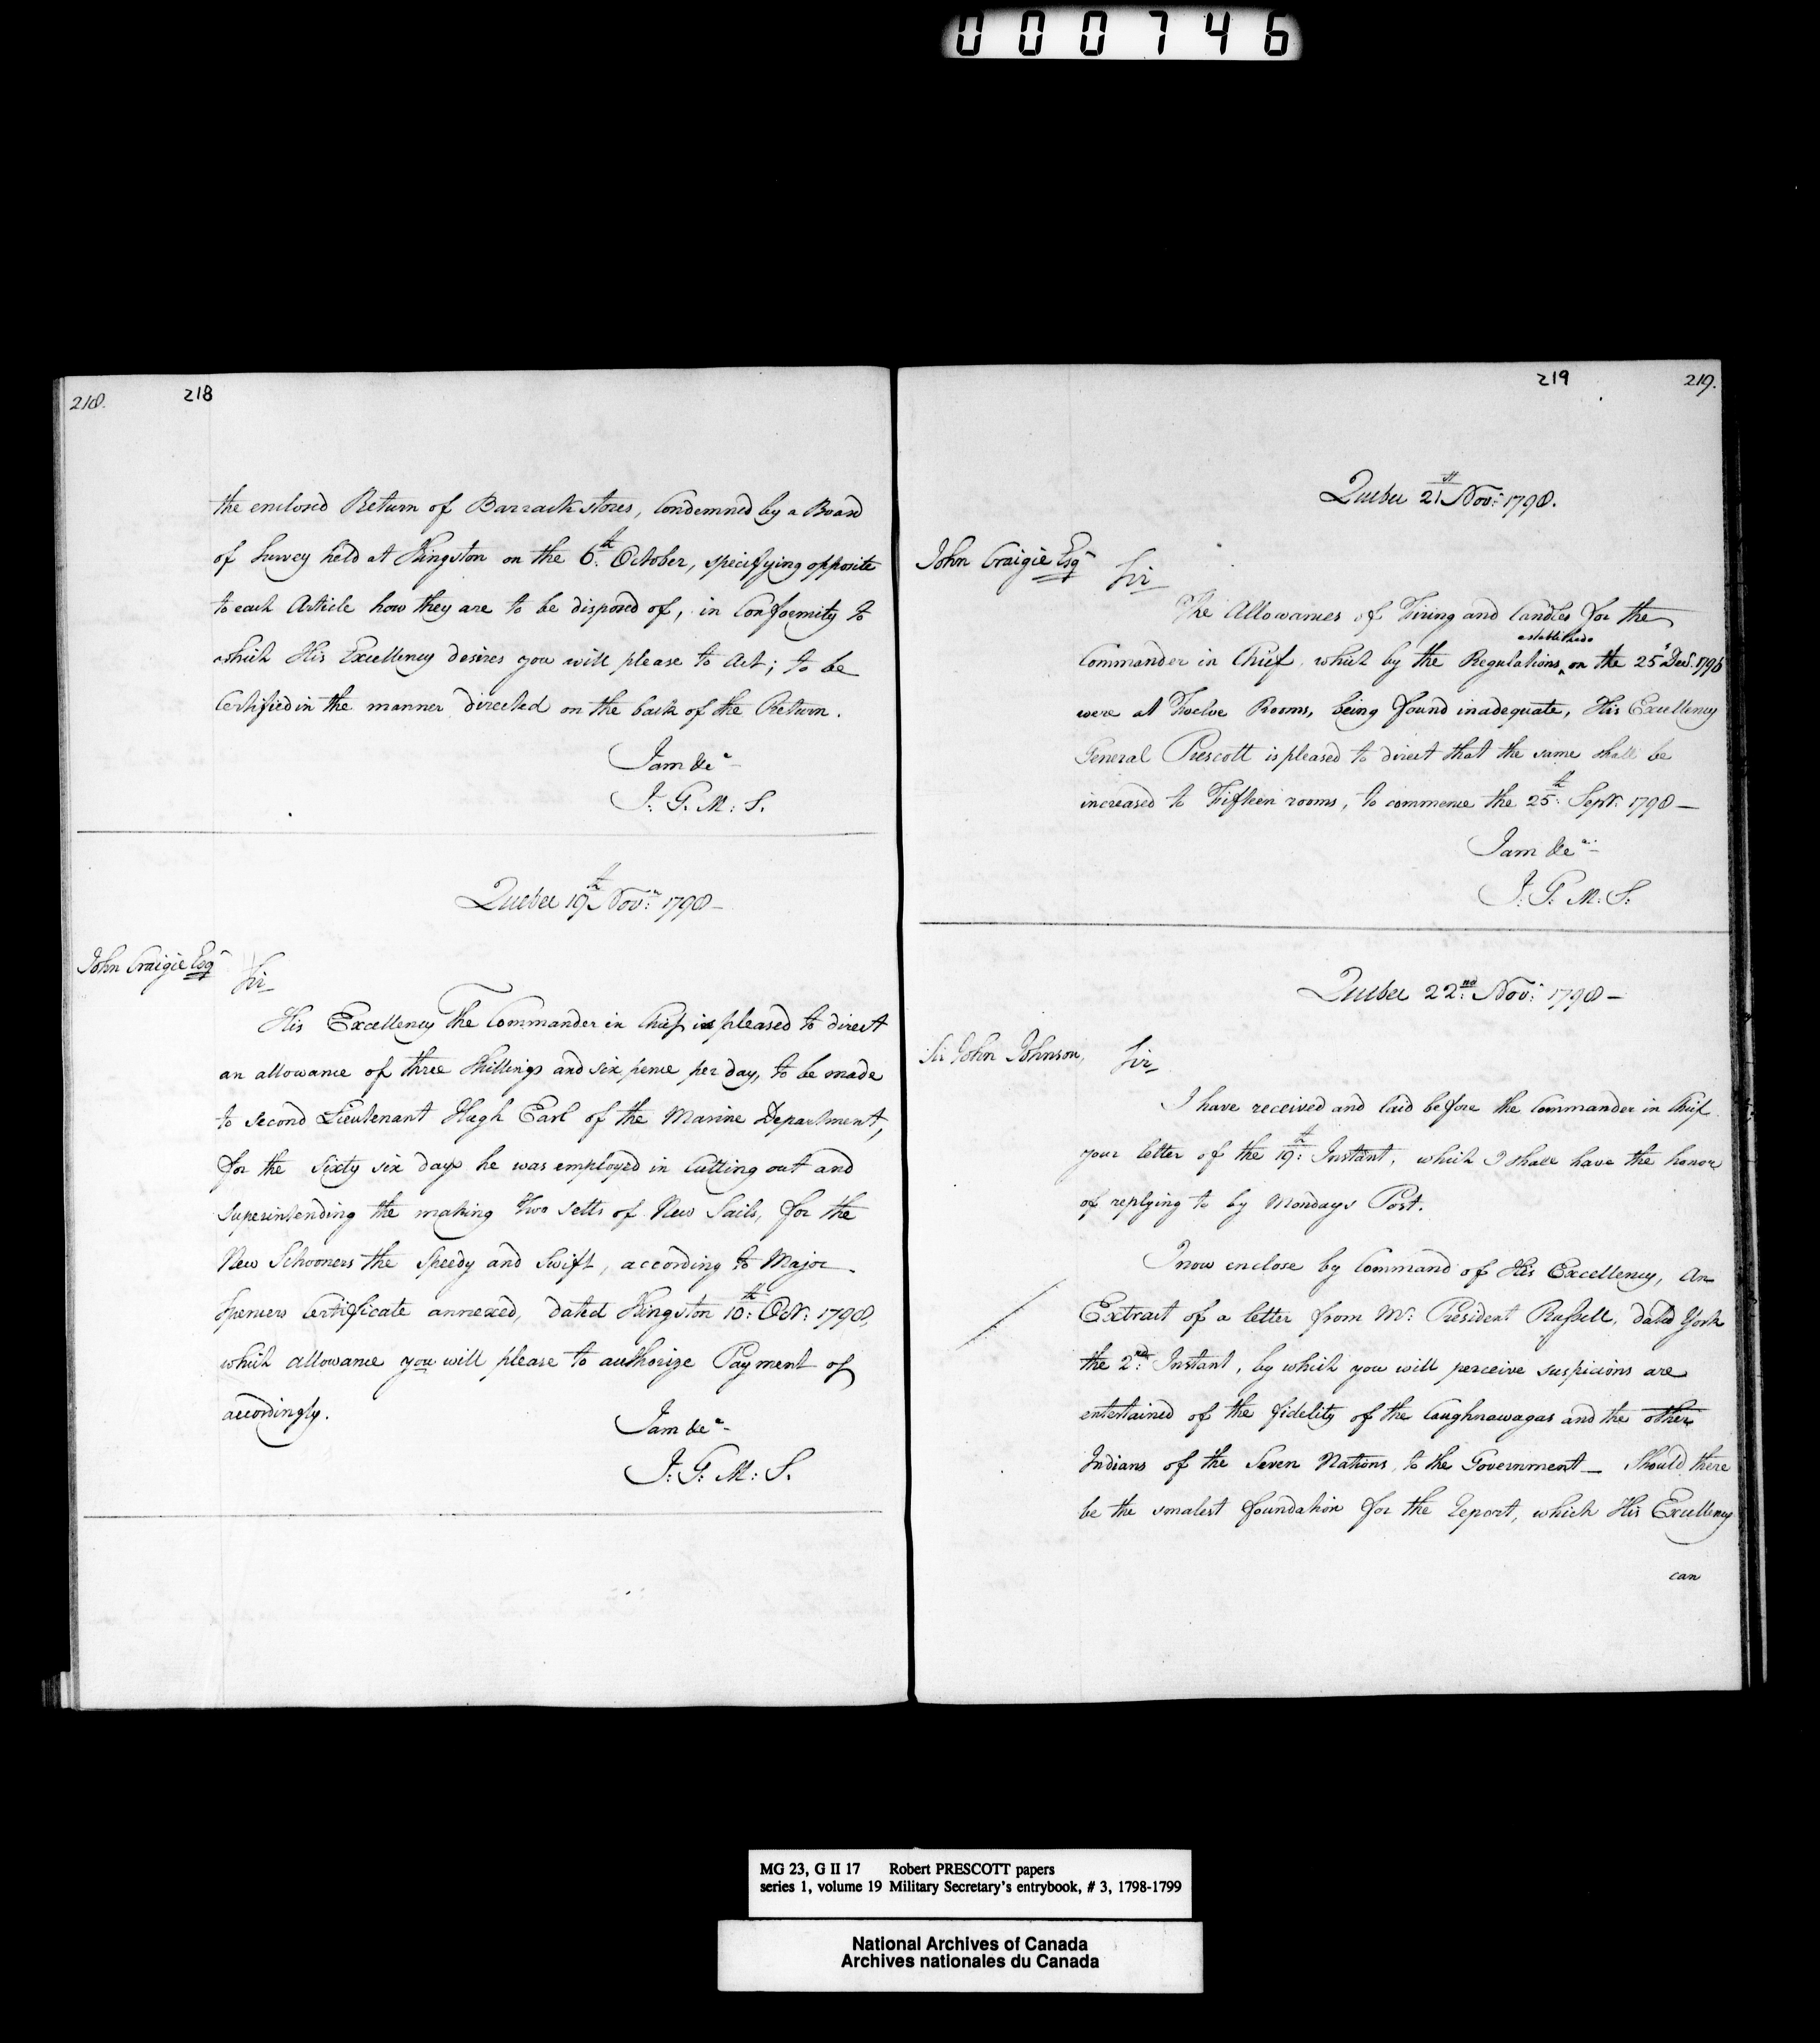 000746
218. 218
the enclosed Return of Barrack stores, Condemned by a Board
of Survey held at Kingston on the 6th: October, specifying opposite
to each Article how they are to be disposed of, in Conformity to
which His Excellency desires you will please to Act; to be
Certified in the manner directed on the back of the Return.
I am &ca
J: G: M: S.
Quebec 19th Novr: 1798–
John Craigie Esqr
Sir
His Excellency The Commander in Chief is pleased to direct
an allowance of three Shillings and six pence per day, to be made
to second Lieutenant Hugh Earl of the Marine Department,
for the Sixty six days he was employed in Cutting out and
Superintending the making Two Setts of New Sails, for the
New Schooners the Speedy and Swift, according to Major
Spencers Certificate annexed, dated Kingston 10th: Octr: 1798,
which allowance you will please to authorize Payment of
accordingly.
I am &ca
J: G: M: S.
219 219.
Quebec 21st Novr: 1798.
John Craigie Esqr
Sir
The Allowances of Firing and Candles for the
established
Commander in Chief, which by the Regulations ‸ on the 25th Decr. 1796
were at Twelve Rooms, being found inadequate, His Excellency
General Prescott is pleased to direct that the same shall be
increased to Fifteen rooms, to commence the 25th: Septr: 1798–
I am &ca
J: G: M: S.
Quebec 22nd: Novr: 1798–
Sir John Johnson,
Sir,
I have received and laid before the Commander in Chief
your letter of the 19th: Instant, which I shall have the honor
of replying to by Mondays Post.
I now enclose by Command of His Excellency, An
Extract of a letter from Mr: President Russell, dated York
the 2nd: Instant, by which you will perceive suspicions are
entertained of the fidelity of the Caughnawagas and the other
Indians of the Seven Nations, to the Government– Should there
be the smalest foundation for the Report, which His Excellency
can
MG 23, G II 17 Robert PRESCOTT papers
series 1, volume 19 Military Secretary's entrybook, # 3, 1798-1799
National Archives of Canada
Archives nationales du Canada